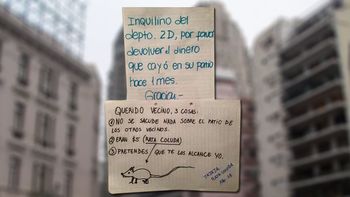 Inquilino del
depto. 2D, por favor
devolver el dinero
que cayó en su patio
hace 1 mes.
Gracias-
QUERIDO VECINO, 3 COSAS:
① NO SE SACUDE NADA SOBRE EL PATIO DE
LOS OTROS VECINOS.
② ERAN $5 (RATA COLUDA)
③ PRETENDES QUE TE LOS ALCANCE YO.
RATA COLUDA